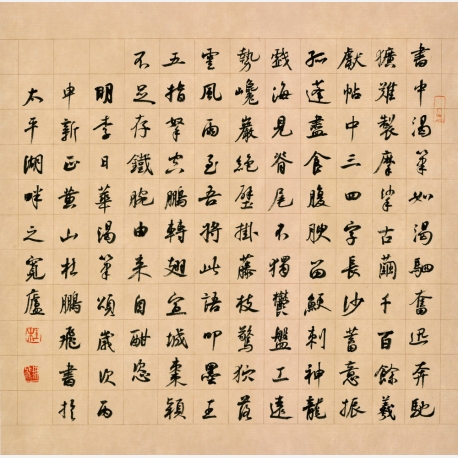 書中渴筆如渴驷奮迅奔馳
獷難製摩挲古繭千百餘羲
獻帖中三四字長沙蓄意振
孤蓬盡食腹腴留鯁刺神龍
戲海見脊尾不獨鬱盤工遠
勢巉巖絕壁掛藤枝驚狖落
雲風雨至吾將此語叩墨王
五指拏空鵬轉翅宣城棗穎
不足存鐵腕由来自酣恣
明李日華渴筆頌歲次丙
申新正黄山杜鵬飛書於
太平湖畔之寬廬